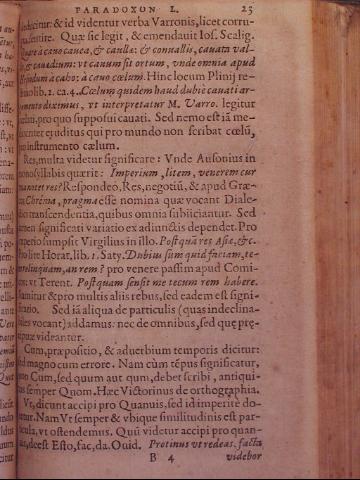 PARADOXON L. 25
dicitur: & id videntur verba Varronis, licet corru-
sentire. Quæ sic legit, & emendauit Ios. Scalig.
à cano cauea, & caulla: & conuallis, cauata val-
& cauædium: vt canum sit ortum, vnde omnia apud
Hesiodum à cabo: à cano cœlum. Hinc locum Plinij re-
lib. 2. ca. 4. Cœlum quidem haud dubiè cauati ar-
mento diximus, vt interpretatur M. Varro. legitur
pro quo supposui cauati. Sed nemo est iã me-
eruditus qui pro mundo non scribat cœlũ,
instrumento cælum.
Res, multa videtur significare: Vnde Ausonius in
monosyllabis quærit: Imperium, litem, venerem cur
notet res? Respondeo, Res, negotiũ, & apud Græ-
Chrêma, pragma esse nomina quæ vocant Diale-
transcendentia, quibus omnia subiiciantur. Sed
significati variatio ex adiunctis dependet. Pro
imperio sumpsit Virgilius in illo. Postquã res Asiæ, &c.
lite Horat, lib. 1. Saty. Dubius sum quid faciam, te-
relinquam, an rem? pro venere passim apud Comi-
vt Terent. Postquam sensit me tecum rem habere.
& pro multis aliis rebus, sed eadem est signi-
Sed iã aliqua de particulis (quas indeclina-
vocant) addamus: nec de omnibus, sed quę prę-
videantur.
Cum, præpositio, & aduerbium temporis dicitur:
magno cum errore. Nam cùm tẽpus significatur,
non Cum, sed quum aut qum, debet scribi, antiqui-
semper Quom. Hæc Victorinus de orthographia.
Vt, dicunt accipi pro Quanuis. sed id imperitè do-
Nam Vt semper & vbique similitudinis est par-
vt ostendemus. Quũ videtur accipi pro quan-
deest Esto, fac, da. Ouid. Protinus vt redeas. facta
B 4 videbor